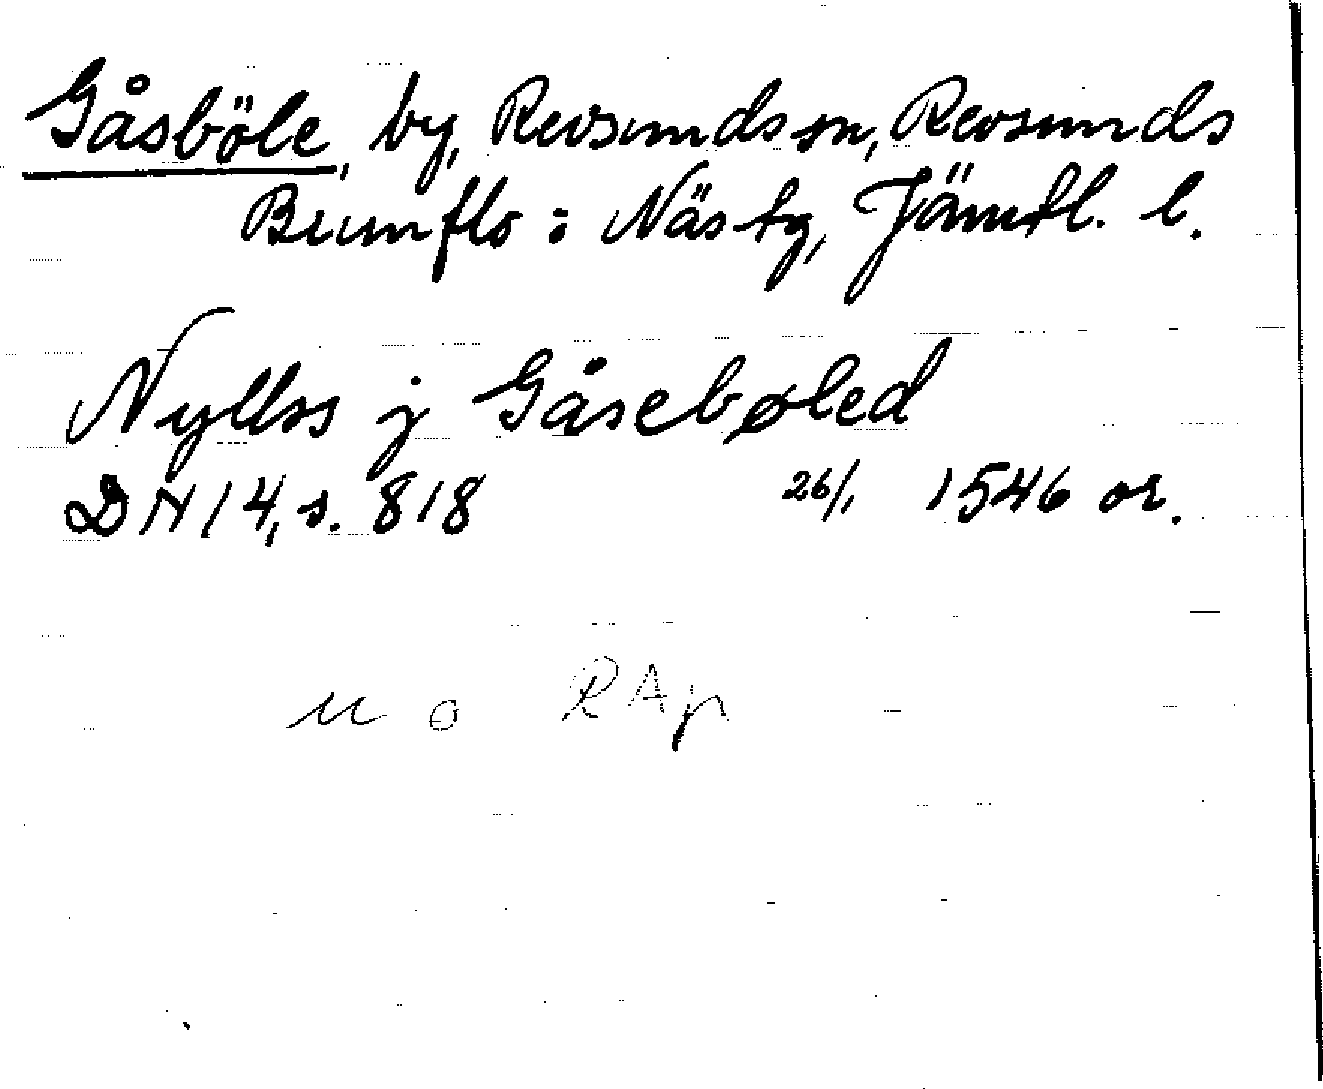 Gåsböle, by, Revsunds sn, Revsunds
Brunflo o Näs tg, Jämtl. l.
Nyllss j Gåsebøled
DN 14, s. 818 26/1 1546 or.
n o RAp